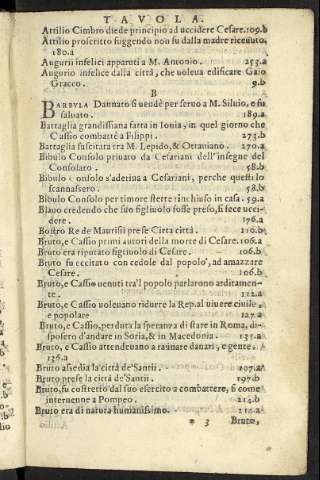 TAVOLA.
Attilio Cimbro diede principio ad uccider Cesare. 109.b
Attilio proscritto fuggendo non fu dalla madre riceuuto.
180.a
Augurii infelici apparuti a M. Antonio. 253.a
Augurio infelice dalla città, che uoleua edificare Gaio
Gracco. 9.b
B
BARBVLA Dannato si uendè per seruo a M. Siluio, e fu
saluato. 189.a
Battaglia grandissima fatta in Ionia, in quel giorno che
Cassio combattè a Filippi. 273.b
Battaglia suscitata tra M. Lepido, & Ottauiano. 270.a
Bibulo Consolo priuato da Cesariani dell'insegne del
Consolaro. 58.b
Bibulo Consolo s'adetiua a Cesariani, perche questi lo
scannassero. 58.b
Bibulo Consolo per timore stette rinchiuso in casa. 59.a
Blauo credendo che suo figliuolo fusse preso, si fece ucci-
dere. 176.a
Bostro Re de Maurisii prese Cirta città. 210.b
Bruto, e Cassio primi autori della morte di Cesare. 106.a
Bruto era riputato figliuolo di Cesare. 106.b
Bruto fu eccitato con cedole dal popolo, ad amazzare
Cesare. 106.b
Bruto, e Cassio uenuti tra'l popolo parlarono arditamen-
te. 112.a
Bruto, e Cassio uoleuano ridurre la Rep. al uiuere ciuile
e popolare 127.a
Bruto, e Cassio, perduta la speranza di stare in Roma, di-
sposero d'andare in Soria, & in Macedonia. 131.a
Bruto, e Cassio attendeuano a raunare danari, e gente.
136.a
Bruto assedia la città de'Santii. 197.a
Bruto prese la città de'Santii. 197.b
Bruto, fu costretto dal suo esercito a combattere, si come
interuenne a Pompeo. 214.b
Bruto era di natura humanissimo. 210.a
* 3 Bruto,